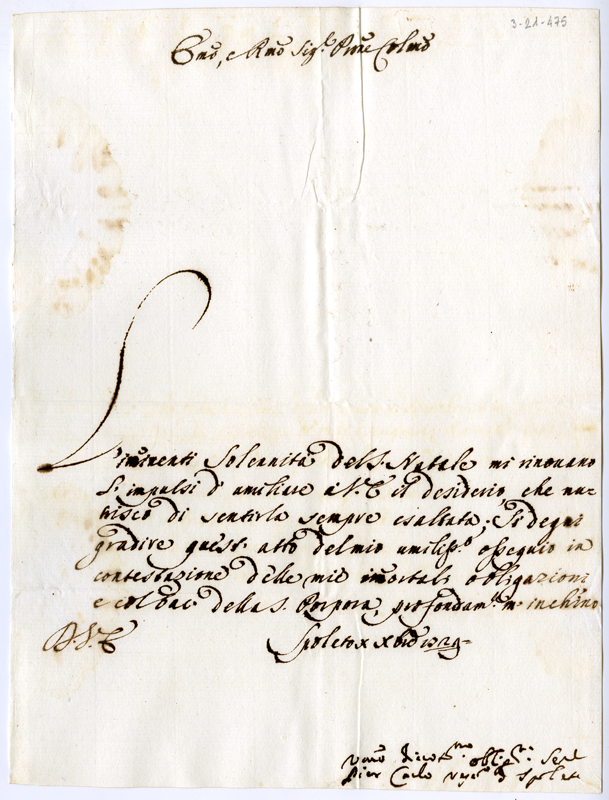 3-21-475
Emo, e Rmo Sig.r Prone Colmo
L'imminenti Solennità del S. Natale mi rinovano
gl'impulsi d'umiliare a V.E. il desiderio, che nu-
trisco di sentirla sempre esaltata; Si degni
gradire quest'atto del mio umiliss.o ossequio in
contestazione delle mie immortali obligazioni
e col bac. della S. Porpora, profondam.te m'inchino
D.V.E.
Spoleto x xbre 1729
Umo Divotmo obl.mo Ser
Pier Carlo Vescovo di Spoleti